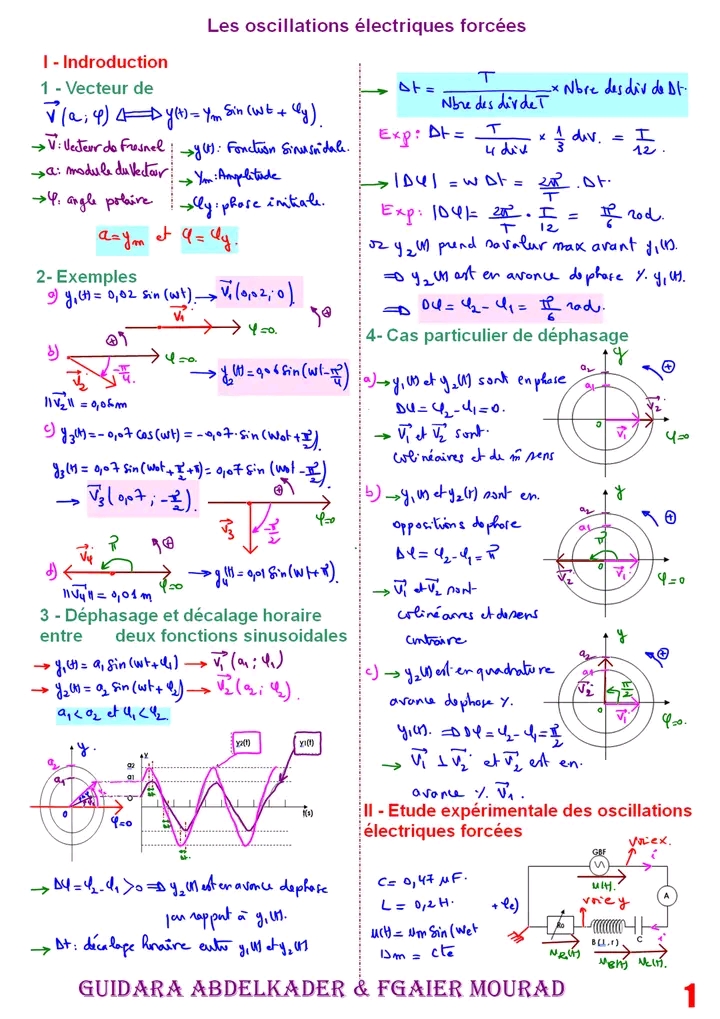 Les oscillations électriques forcées
I - Indroduction
1 - Vecteur de
V⃗ (a ; φ) ⟺ y(t) = Ym sin(wt + φy).
→ V⃗ : Vecteur de Fresnel
→ a : module du vecteur
→ φ : angle polaire
→ y(t) : Fonction Sinusoidale.
→ Ym : Amplitude
→ φy : phase initiale.
a = ym et φ = φy.
2- Exemples
a) y1(t) = 0,02 sin(wt) → V⃗1 (0,02 ; 0).
V⃗1
φ=0.
b)
φ=0.
V⃗2
-π/4
→ y2(t) = 0,06 sin(wt - π/4)
||V⃗2|| = 0,06m
c) y3(t) = -0,07 cos(wt) = -0,07. sin(wt + π/2).
y3(t) = 0,07 sin(wt + π/2 + π) = 0,07 sin(wt - π/2)
→ V⃗3 (0,07 ; -π/2).
V⃗3
-π/2
φ=0
V⃗4
π
d)
φ=0
→ y4(t) = 0,01 sin(wt + π).
||V⃗4|| = 0,01m
3 - Déphasage et décalage horaire
entre deux fonctions sinusoidales
→ y1(t) = a1 sin(wt + φ1) → V⃗1 (a1 ; φ1)
→ y2(t) = a2 sin(wt + φ2) → V⃗2 (a2 ; φ2).
a1 < a2 et φ1 < φ2.
y2(t) y1(t)
y
a2
a1
0
φ=0
Y
a2
a1
t(s)
→ Δφ = φ2 - φ1 > 0 ⟹ y2(t) est en avance de phase
par rapport à y1(t).
→ Δt : décalage horaire entre y1(t) et y2(t)
→ Δt = T / Nbre des div de T × Nbre des div de Δt.
Exp : Δt = T / 4 div × 1/3 div. = T/12.
→ |Δφ| = w Δt = 2π/T . Δt.
Exp : |Δφ| = 2π/T . T/12 = π/6 rad.
or y2(t) prend sa valeur max avant y1(t).
⟹ y2(t) est en avance de phase % y1(t).
⟹ Δφ = φ2 - φ1 = π/6 rad.
4- Cas particulier de déphasage
a) → y1(t) et y2(t) sont en phase
Δφ = φ2 - φ1 = 0.
→ V⃗1 et V⃗2 sont.
colinéaires et de m̂ sens
y
a2
a1
0
V⃗1
V⃗2
φ=0
b) → y1(t) et y2(t) sont en.
oppositions de phase
Δφ = φ2 - φ1 = π
→ V⃗1 et V⃗2 sont
colinéaires et de sens
contraire
y
a2
a1
π
V⃗2
0
V⃗1
φ=0
c) → y2(t) est en quadrature
avance de phase %.
y1(t). ⟹ Δφ = φ2 - φ1 = π/2
→ V⃗1 ⊥ V⃗2 et V⃗2 est en.
avance % V⃗1.
y
a2
a1
V⃗2
π/2
0
V⃗1
φ=0.
II - Etude expérimentale des oscillations
électriques forcées
C = 0,47 μF.
L = 0,2 H.
u(t) = Um sin(wet + φe)
Um = cte
GBF
voie x.
i
u(t).
A
voie y
Ro
B(L,r)
C
i
uRo(t)
uB(t)
uc(t).
GUIDARA ABDELKADER & FGAIER MOURAD
1